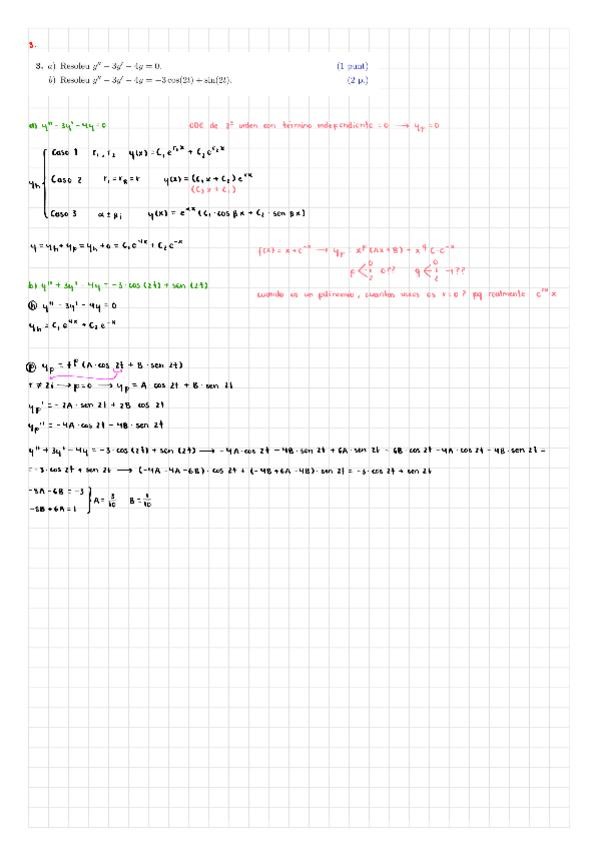 3.
3. a) Resoleu y'' − 3y' − 4y = 0. (1 punt)
b) Resoleu y'' − 3y' − 4y = −3 cos(2t) + sin(2t). (2 p.)
a) y'' - 3y' - 4y = 0
EDE de 2º orden con término independiente = 0 → yp = 0
yh
Caso 1 r₁, r₂ y(x) = C₁e^(r₁x) + C₂e^(r₂x)
Caso 2 r₁ = r₂ = r y(x) = (C₁x + C₂)e^(rx)
(C₂x + C₁)
Caso 3 α ± βi y(x) = e^(αx) [C₁ · cos βx + C₂ · sen βx]
y = yh + yp = yh + 0 = C₁e^(4x) + C₂e^(-x)
f(x) = x + e^(-x) → yp = x^p (Ax + B) + x^q C·e^(-x)
p < 0 1 2 0?? q < 0 1 2 -1??
cuando es un polinomio, cuantas veces es r = 0? pq realmente e^(0x) x
b) y'' + 3y' - 4y = -3 · cos (2t) + sen (2t)
(h) y'' - 3y' - 4y = 0
yh = C₁e^(4x) + C₂e^(-x)
(p) yp = t^p (A · cos 2t + B · sen 2t)
r ≠ 2i → p = 0 → yp = A cos 2t + B · sen 2t
yp' = -2A · sen 2t + 2B cos 2t
yp'' = -4A · cos 2t - 4B · sen 2t
y'' + 3y' - 4y = -3 · cos (2t) + sen (2t) → -4A · cos 2t - 4B · sen 2t + 6A · sen 2t - 6B · cos 2t - 4A · cos 2t - 4B · sen 2t =
= -3 · cos 2t + sen 2t → (-4A - 4A - 6B) · cos 2t + (-4B + 6A - 4B) · sen 2t = -3 · cos 2t + sen 2t
-8A - 6B = -3
-8B + 6A = 1
A = 3/10 B = 1/10